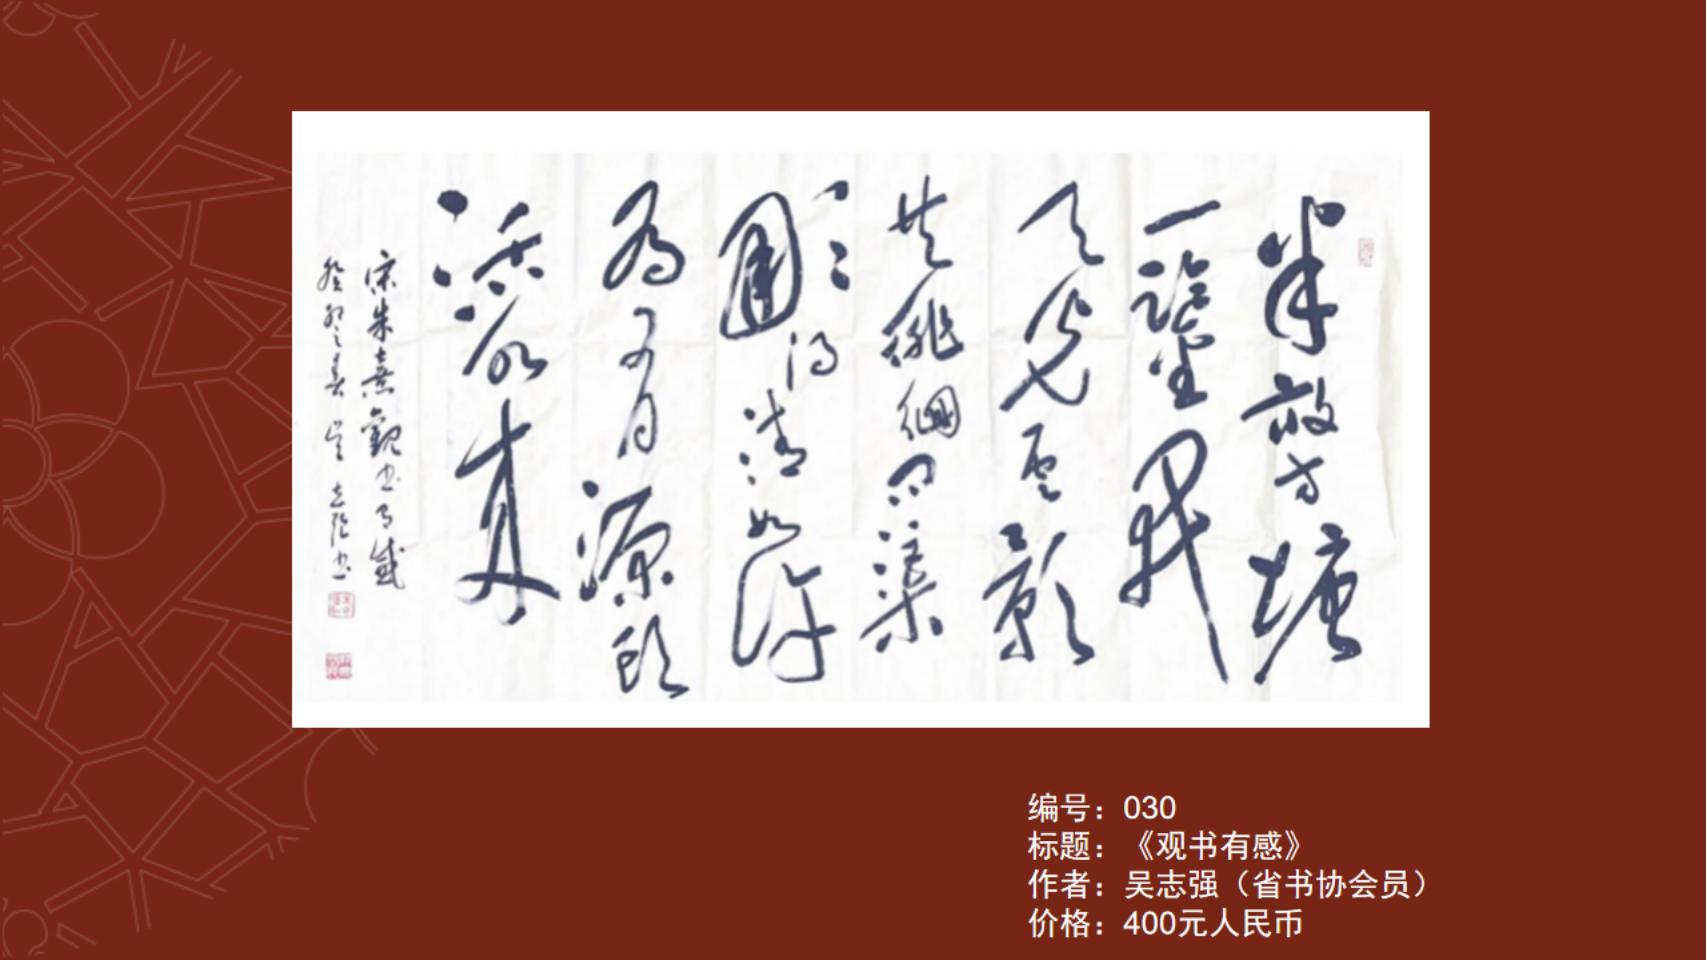 半畝方塘
一鑒開
天光雲影
共徘徊問渠
那得清如許
為有源頭
活水來
宋朱熹觀書有感
癸卯之春吳志強書
编号：030
标题：《观书有感》
作者：吴志强（省书协会员）
价格：400元人民币